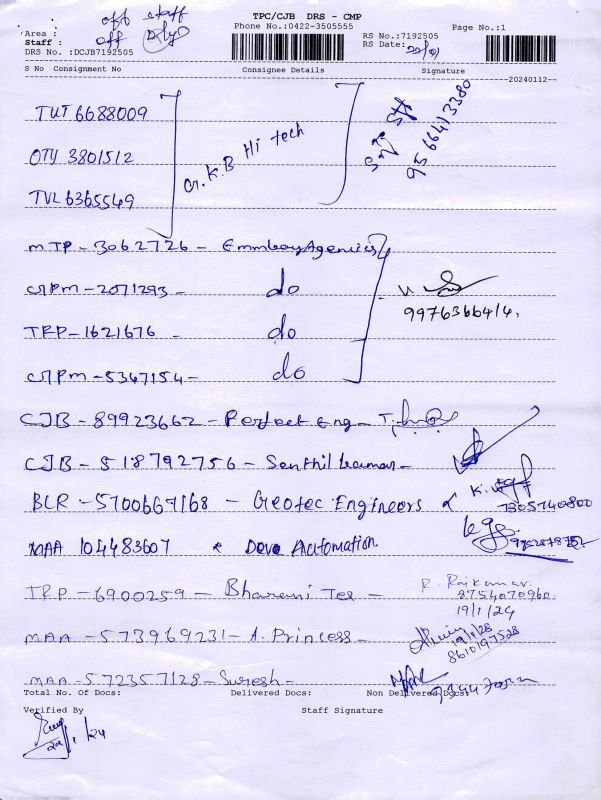 off staff
TPC/CJB DRS - CMP
Phone No.:0422-3505555
Page No.:1
Area : off
Staff :
RS No.:7192505
RS Date:
DRS No. :DCJB7192505
S No Consignment No Consignee Details Signature
20240112
TUT 6688009
OTY 3801512
TVL 6365549
Cr. K.B Hi tech
9566413380
MTP - 3062726 - Emmbay Agencies
CMPM - 2071293 - do
9976366414.
TRP - 1621676 - do
CMPM - 5347154 - do
CJB - 89923662 - Perfect Eng -
CJB - 518792756 - Senthil kumar -
BLR - 5700667168 - Geotec Engineers K.
7305740800
MAA 104483607 Deva Automation
TRP - 6900259 - Bharani Tex - R. Rajkumar
8754070960
19/1/24
MAA - 573969231 - A. Princess -
8610197528
MAA - 572357128 - Suresh -
Total No. Of Docs: Delivered Docs: Non Delivered Docs:
Verified By Staff Signature
22/1/24